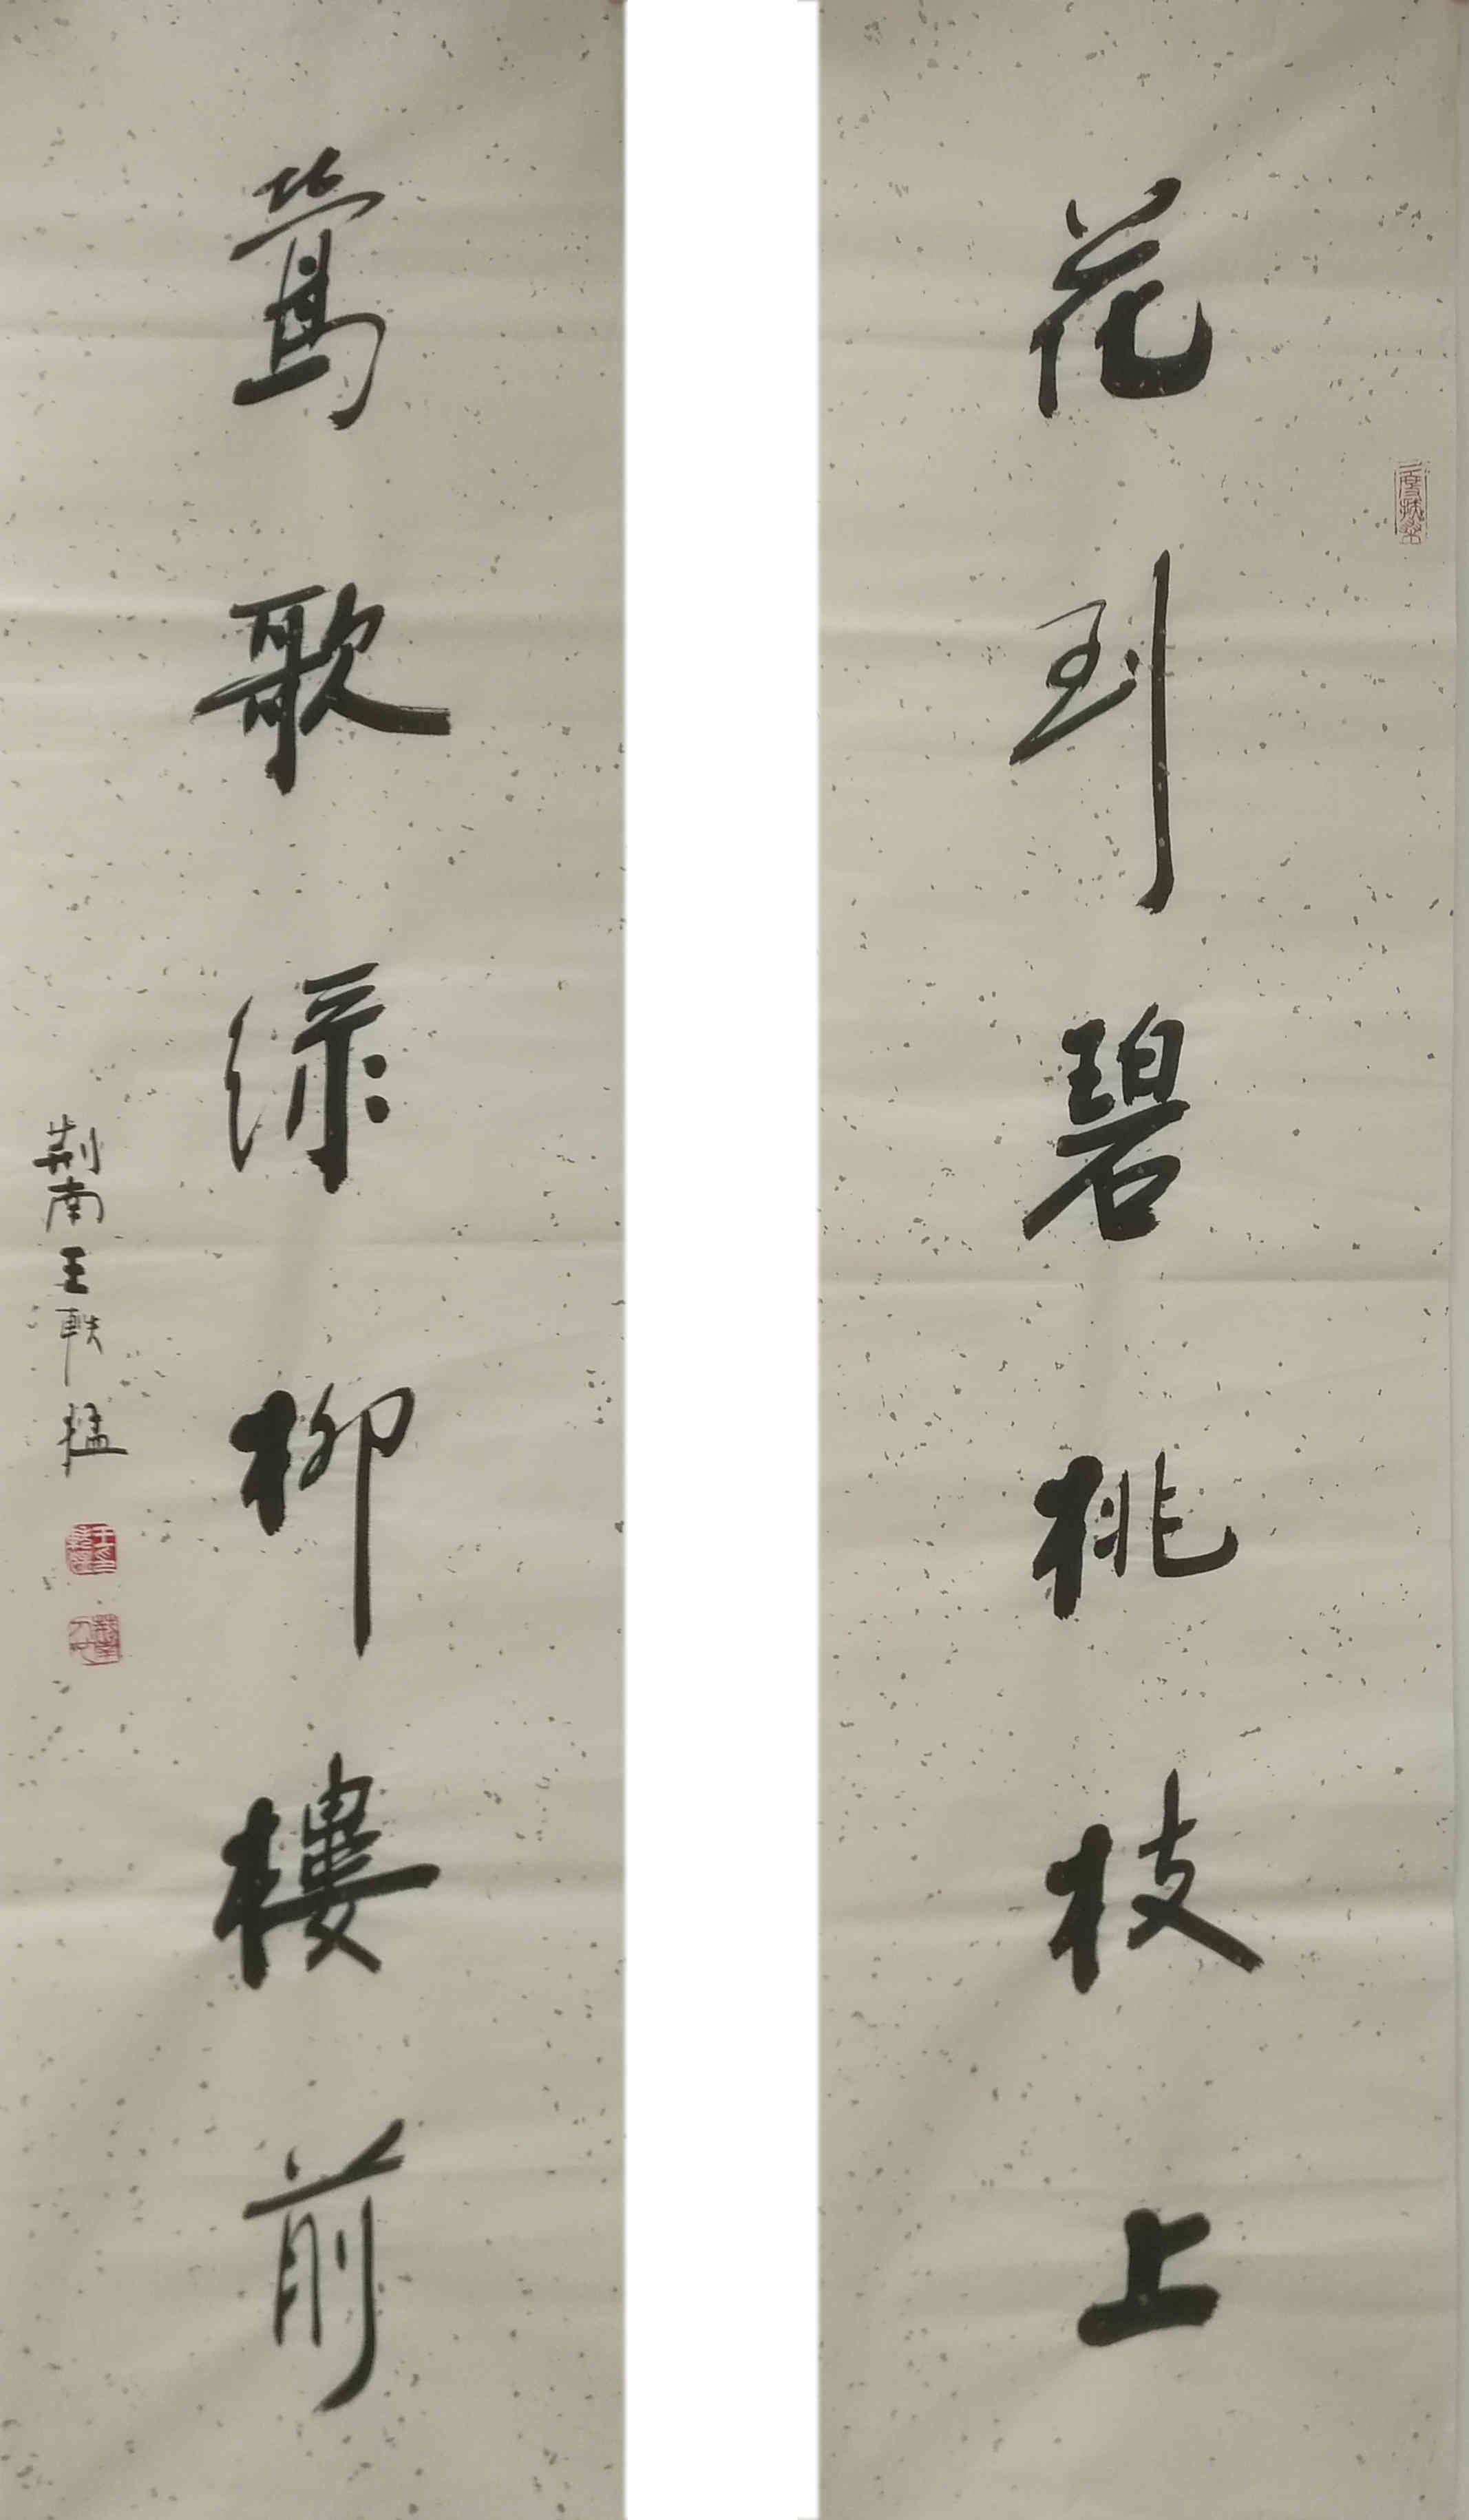 花到碧桃枝上
鶯歌绿柳樓前
荆南王軼猛